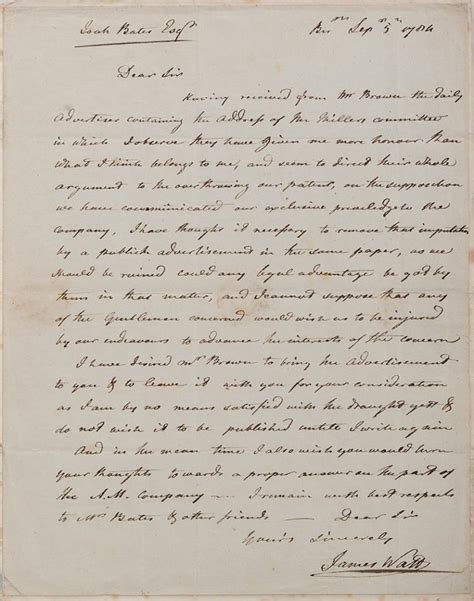 Joah Bates Esqr
Birm Sepr 5th 1784
Dear Sir
Having received from Mr Brown the daily
Advertiser containing the Address of the Millers committee
in which I observe they have given me more honour than
what I think belongs to me, and seem to direct their whole
argument to the overthrowing our patent, on the supposition
we have communicated our exclusive priviledge to the
Company, I have thought it necessary to remove that imputation
by a publick advertisement in the same paper, as we
should be ruined could any legal advantage be got by
them in that matter, and I cannot suppose that any
of the Gentlemen concerned would wish us to be injured
by our endeavours to advance the interests of the concern
I have desired Mr Brown to bring the Advertisement
to you & to leave it with you for your consideration
as I am by no means satisfied with the draught yett &
do not wish it to be published untill I write again
And in the mean time I also wish you would turn
your thoughts towards a proper answer on the part of
the A.M. Company — I remain with best respects
to Mrs Bates & other friends — Dear Sir
Yours Sincerely
James Watt